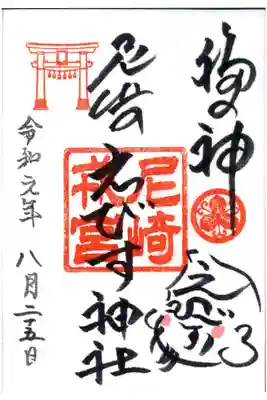 福の神
尼崎
えびす神社
尼崎
戎宮
令和元年
八月二五日